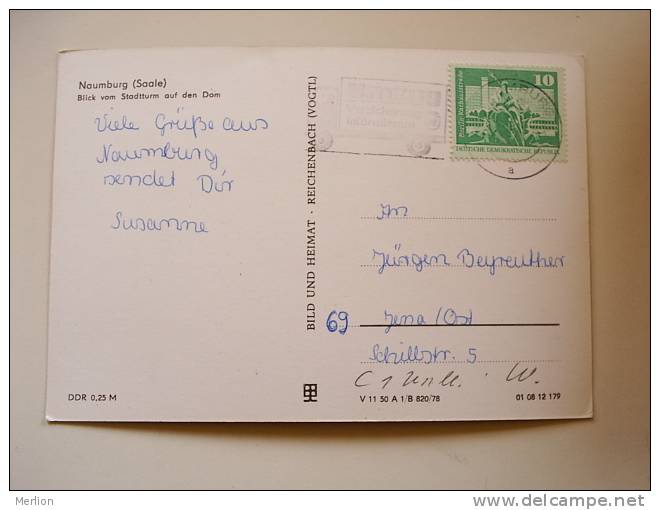 Naumburg (Saale)
Blick vom Stadtturm auf den Dom
Viele Grüße aus
Naumburg
sendet Dir
Susanne
BILD UND HEIMAT · REICHENBACH (VOGTL)
10
DEUTSCHE DEMOKRATISCHE REPUBLIK
a
An
Jürgen Beyreuther
69 Jena/Ost
Schillstr. 5
W.
DDR 0,25 M
V 11 50 A 1/B 820/78
01 08 12 179
Merlion
www.delcampe.net